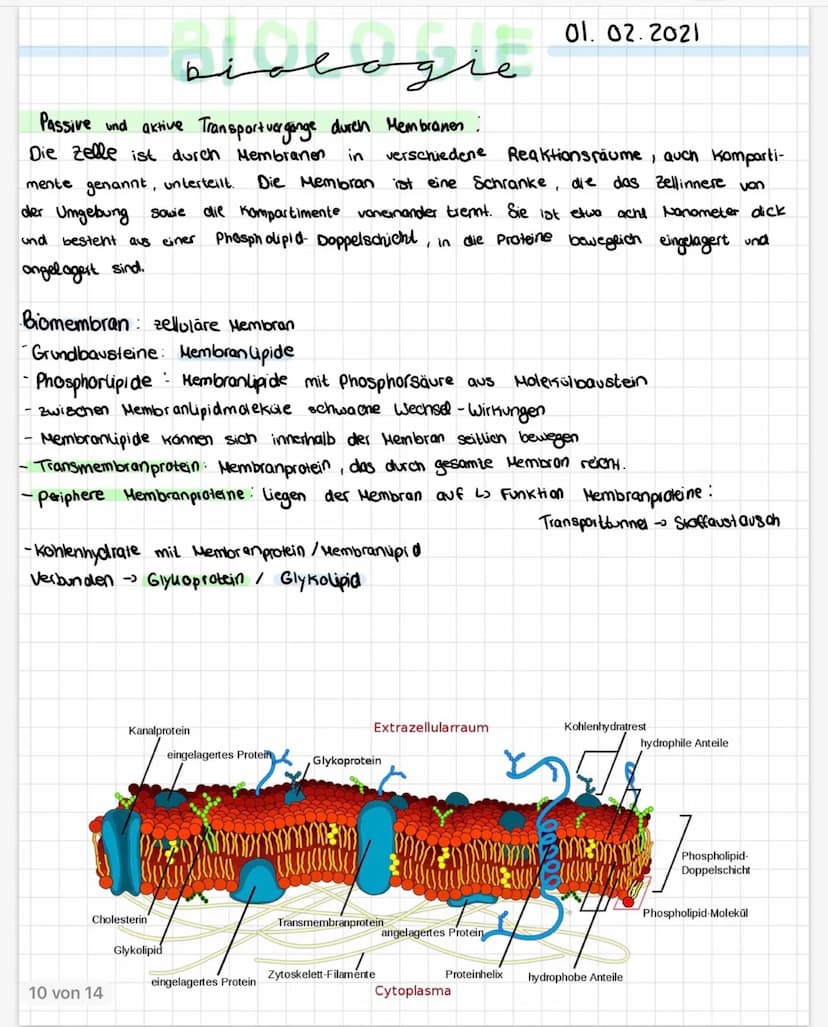 BIOLOGIE
01.02.2021
biologie
Passive und aktive Transportvorgänge durch Membranen:
Die Zelle ist durch Membranen in verschiedene Reaktionsräume, auch Komparti-
mente genannt, unterteilt. Die Membran ist eine Schranke, die das Zellinnere von
der Umgebung sowie die Kompartimente voneinander trennt. Sie ist etwa acht Nanometer dick
und besteht aus einer Phospholipid-Doppelschicht, in die Proteine beweglich eingelagert und
angelagert sind.
Biomembran: zelluläre Membran
- Grundbausteine: Membranlipide
- Phosphorlipide: Membranlipide mit Phosphorsäure aus Molekülbaustein
- zwischen Membranlipidmoleküle schwache Wechsel-Wirkungen
- Membranlipide können sich innerhalb der Membran seitlich bewegen
- Transmembranprotein: Membranprotein, das durch gesamte Membran reicht.
- periphere Membranproteine: Liegen der Membran auf ↳ Funktion Membranproteine:
Transporttunnel → Stoffaustausch
- Kohlenhydrate mit Membranprotein/Membranlipid
Verbunden → Glykoprotein / Glykolipid
Kanalprotein
Extrazellularraum
Kohlenhydratrest
hydrophile Anteile
eingelagertes Protein
Glykoprotein
Phospholipid-
Doppelschicht
Cholesterin
Transmembranprotein
Phospholipid-Molekül
angelagertes Protein
Glykolipid
eingelagertes Protein
Zytoskelett-Filamente
Proteinhelix
hydrophobe Anteile
Cytoplasma
10 von 14